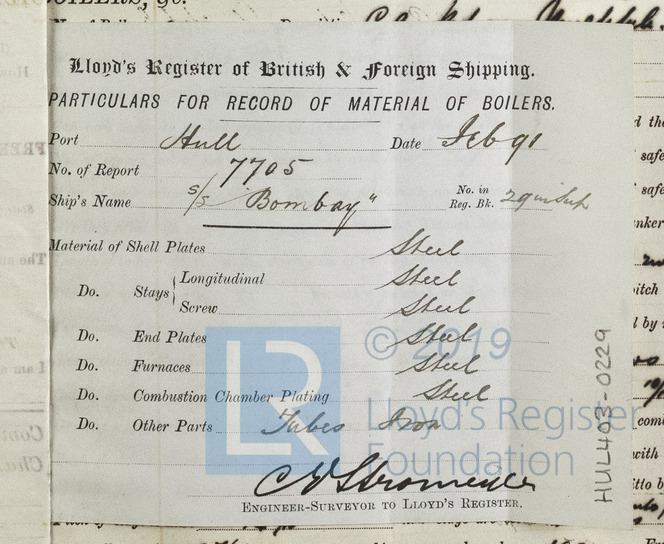 Lloyd's Register of British & Foreign Shipping.
PARTICULARS FOR RECORD OF MATERIAL OF BOILERS.
Port Hull Date Feb 91
No. of Report 7705
Ship's Name s/s "Bombay" No. in Reg. Bk. 29 in Sup
Material of Shell Plates Steel
Do. Stays { Longitudinal Steel
Screw Steel
Do. End Plates Steel
Do. Furnaces Steel
Do. Combustion Chamber Plating Steel
Do. Other Parts Tubes Iron
C E Stromeyer
ENGINEER-SURVEYOR TO LLOYD'S REGISTER.
HUL403-0229
LR © 2019
Lloyd's Register
Foundation